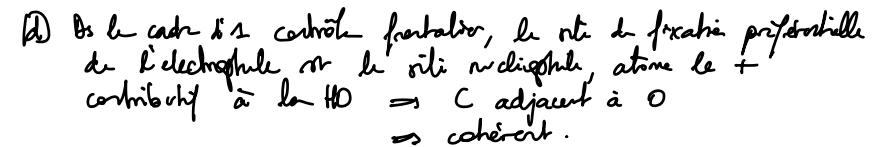 (d) Ds le cadre d'1 contrôle frontalier, le site de fixation préférentielle
de l'électrophile est le site nucléophile, atome le +
contributif à la HO ⇒ C adjacent à O
⇒ cohérent.